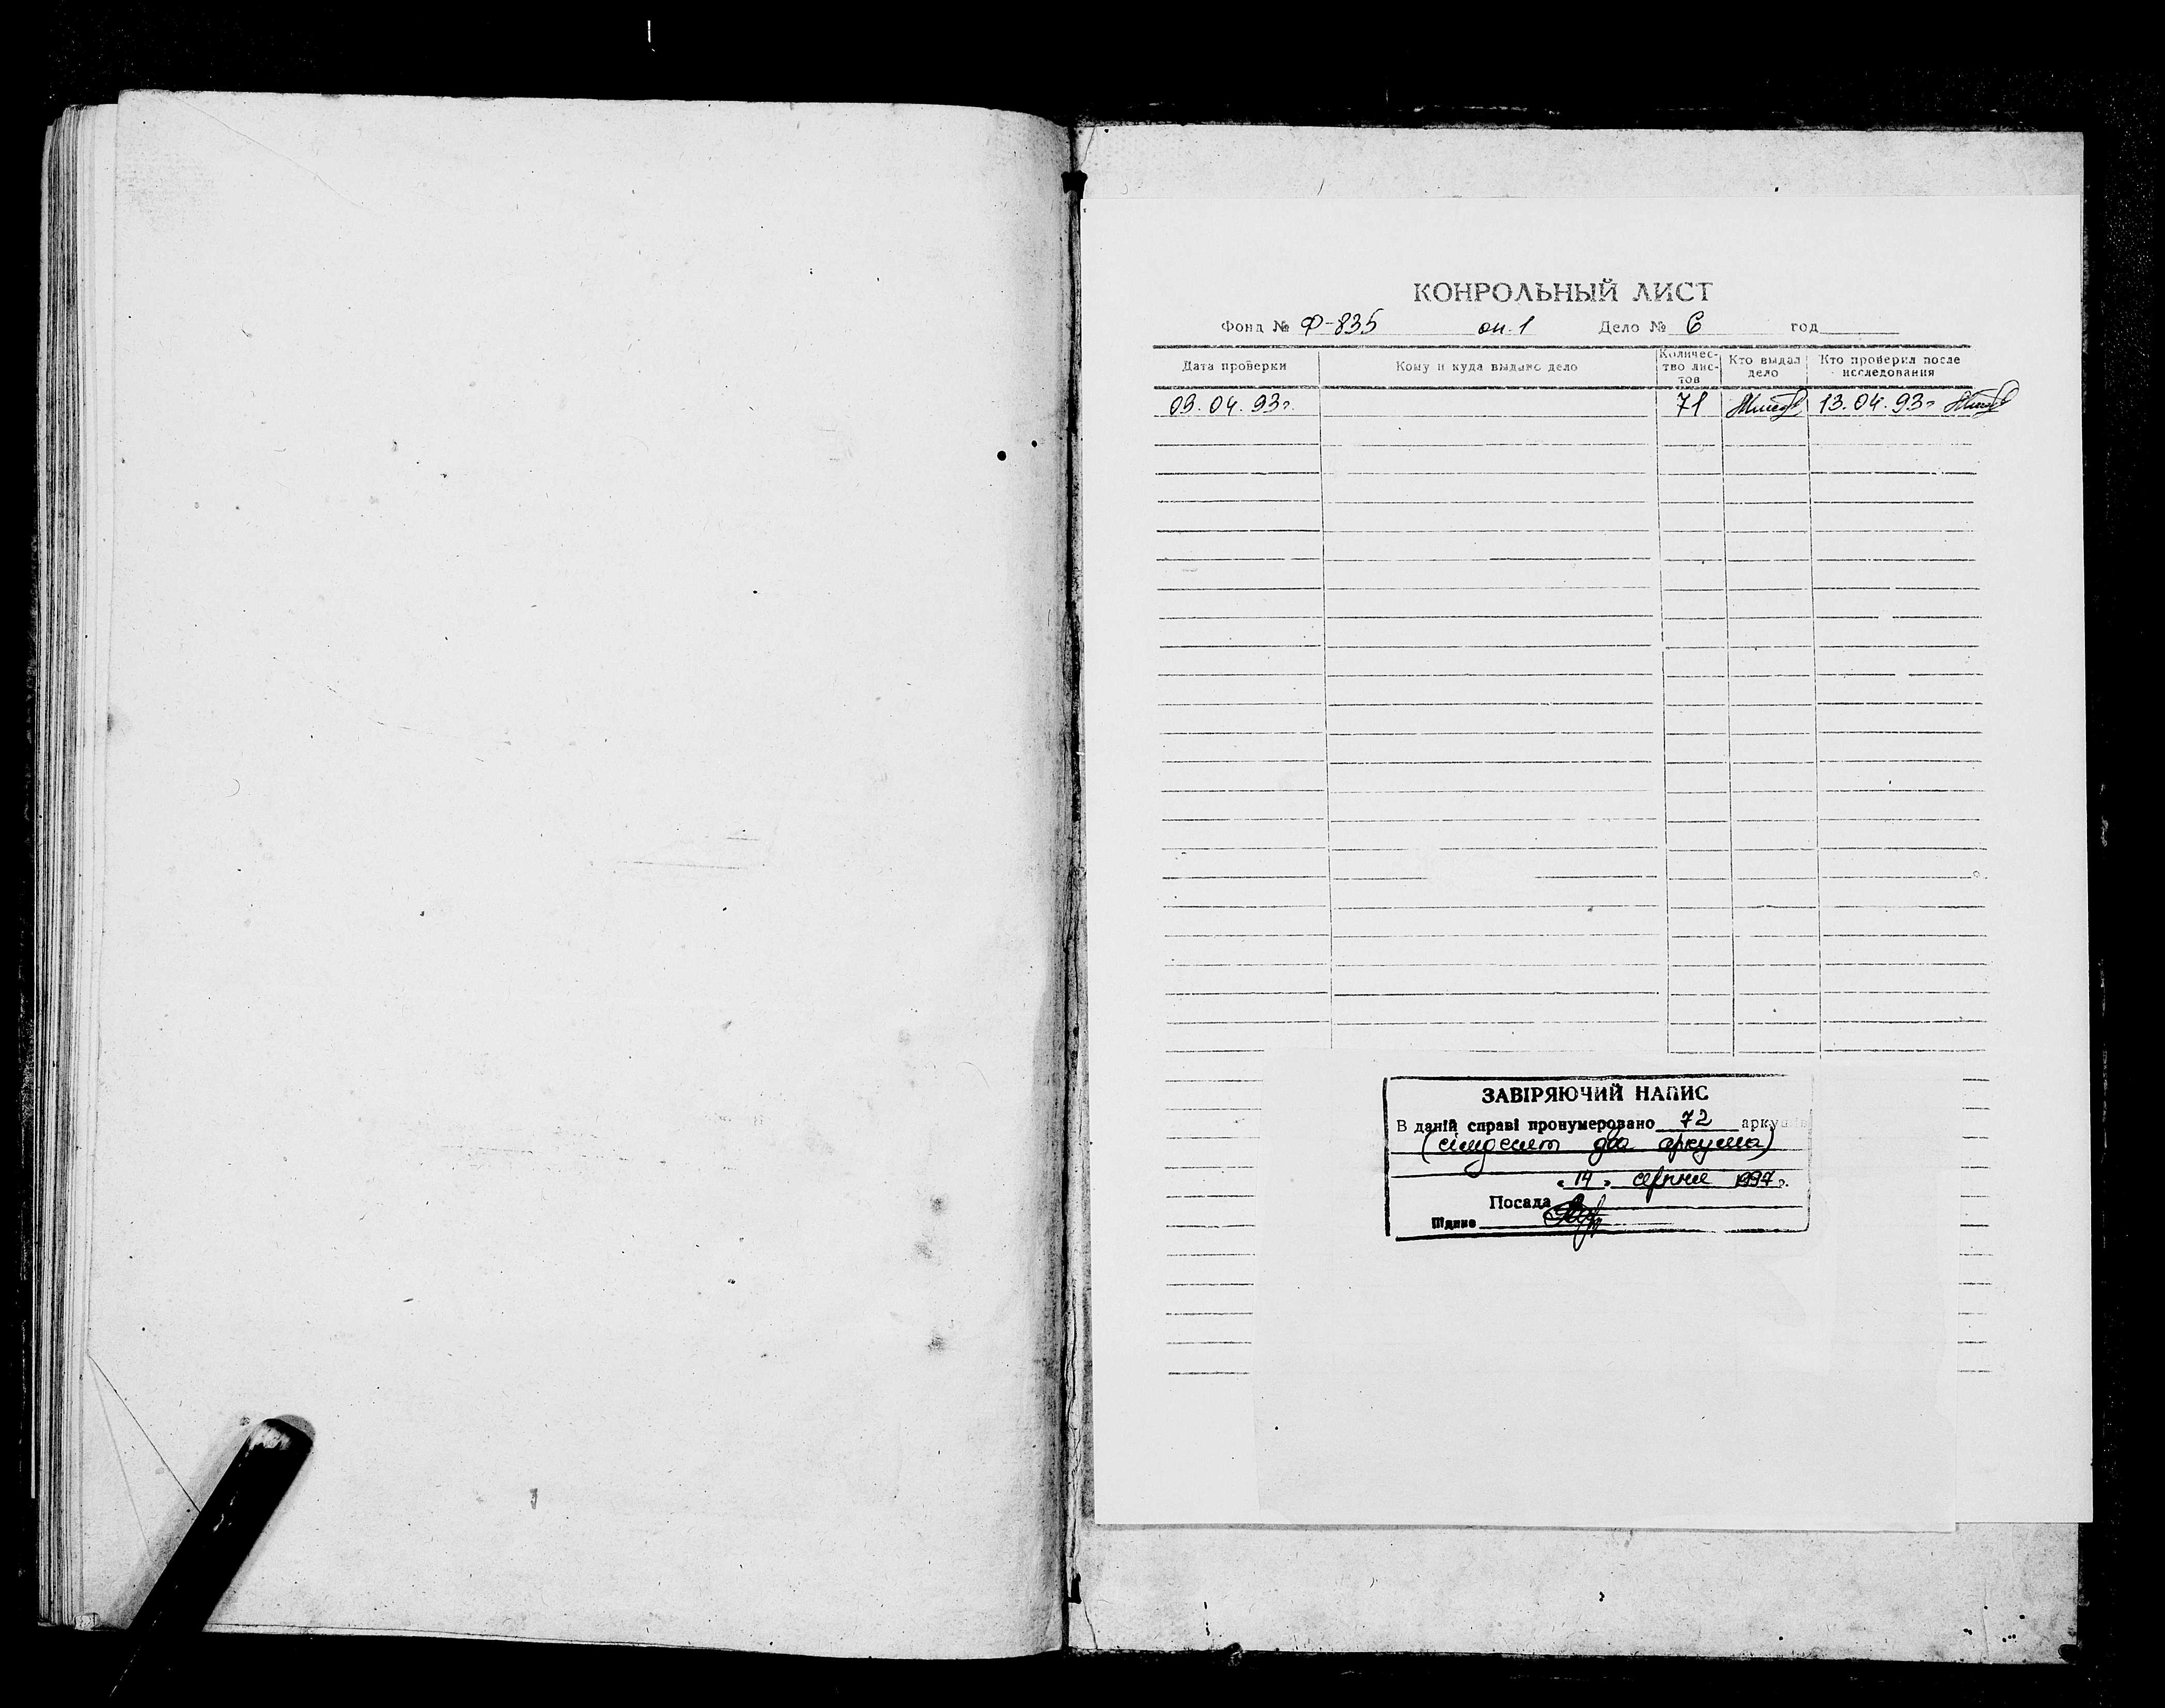 КОНРОЛЬНЫЙ ЛИСТ
Фонд № Ф-835 оп. 1 Дело № 6 год
Дата проверки Кому и куда выдано дело Количес-тво лис-тов Кто выдал дело Кто проверил после исследования
09.04.93г. 71 13.04.93г
ЗАВІРЯЮЧИЙ НАПИС
В даній справі пронумеровано 72 аркушів
(сімдесят два аркуша)
« 14 » серпня 1997р.
Посада
Підпис